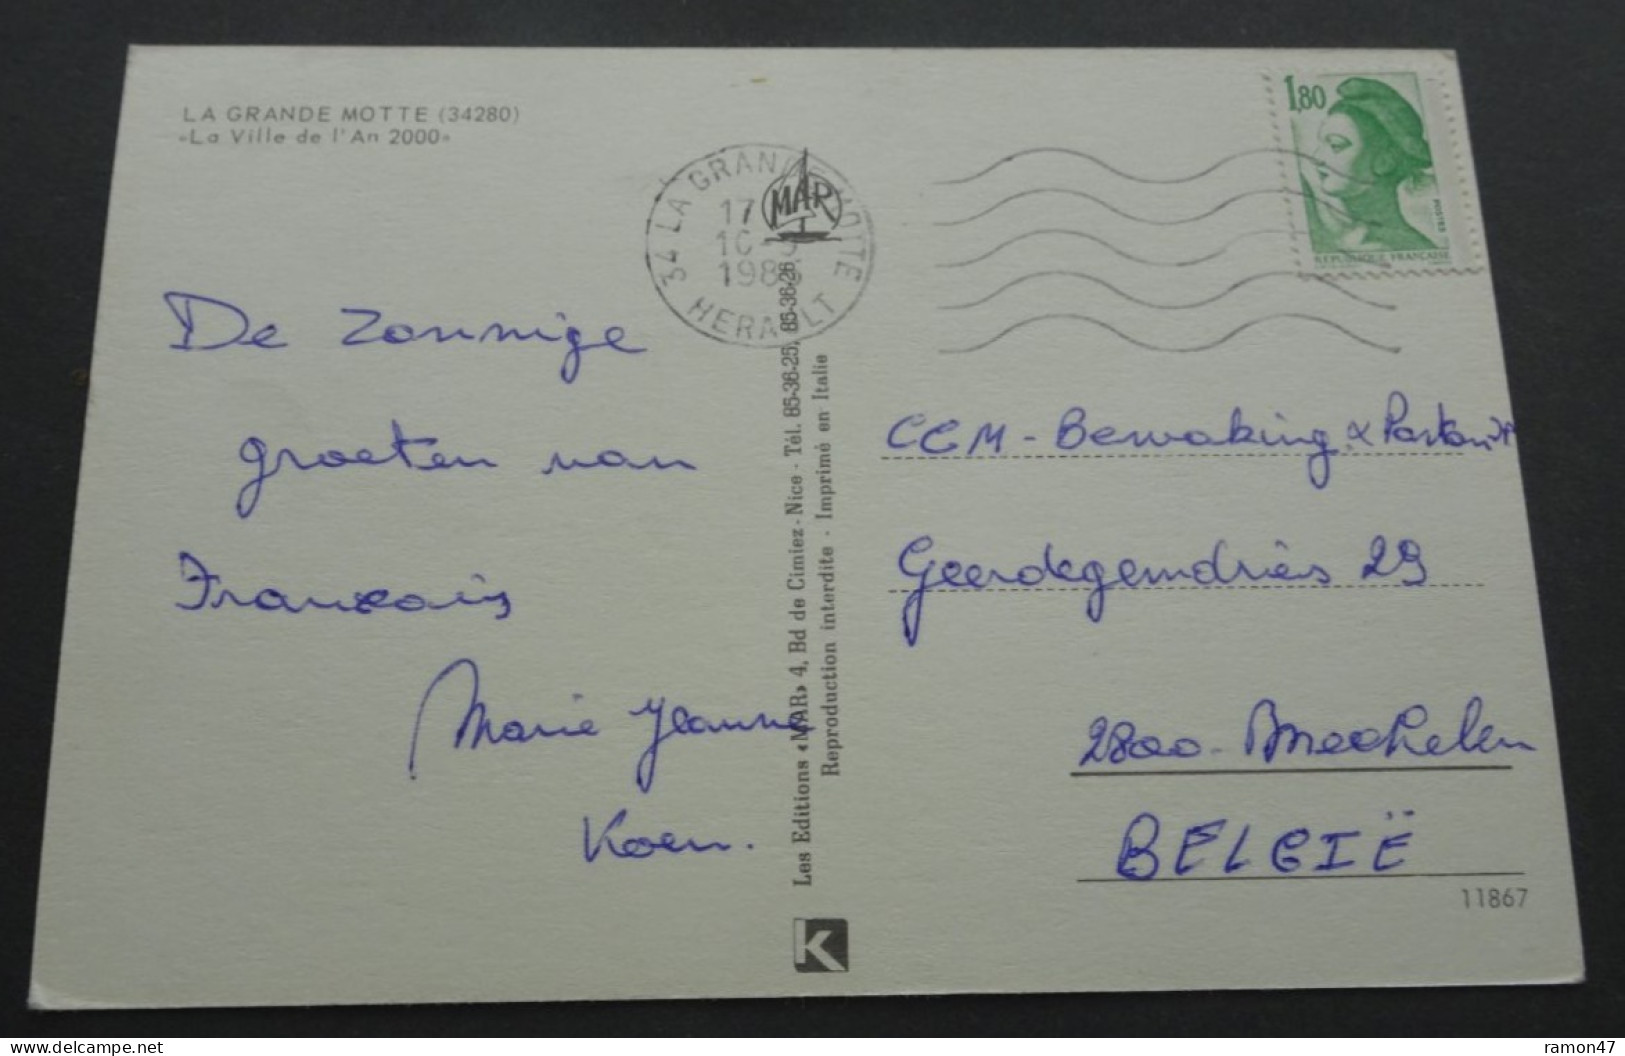 LA GRANDE MOTTE (34280)
«La Ville de l'An 2000»
34 LA GRANDE MOTTE
HERAULT
17
198
MAR
1,80
POSTES
REPUBLIQUE FRANÇAISE
De zonnige
groeten van
Francois
Marie Jeanne
Koen.
Les Editions «MAR» 4, Bd de Cimiez - Nice - Tél. 85-36-25, 85-36-26
Reproduction interdite - Imprimé en Italie
CCM - Bewaking &
Geerdegemdries 29
2800 - Mechelen
BELGIË
11867
K
ramon47